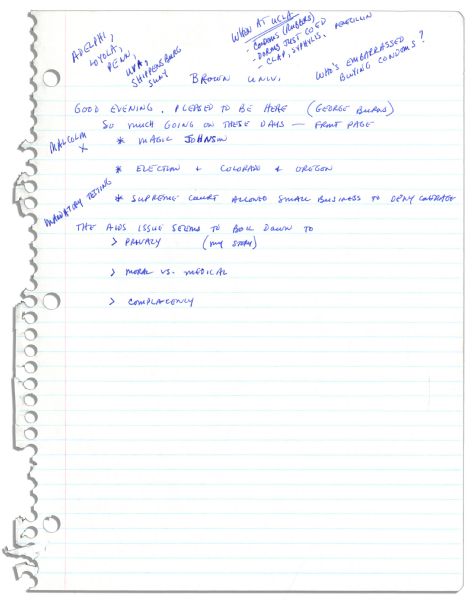 ADELPHI,
LOYOLA,
PENN,
UVA,
SHIPPENSBURG
SUNY
WHEN AT UCLA
- CONDOMS (RUBBERS)
- DORMS JUST COED
- CLAP, SYPHILIS, PENICILLIN
BROWN UNIV.
WHO'S EMBARRASSED
BUYING CONDOMS?
GOOD EVENING, PLEASED TO BE HERE (GEORGE BURNS)
SO MUCH GOING ON THESE DAYS — FRONT PAGE
MALCOLM
X
* MAGIC JOHNSON
* ELECTION & COLORADO & OREGON
MANDATORY TESTING
* SUPREME COURT ALLOWED SMALL BUSINESS TO DENY COVERAGE
THE AIDS ISSUE SEEMS TO BOIL DOWN TO
> PRIVACY (MY STORY)
> MORAL VS. MEDICAL
> COMPLACENCY